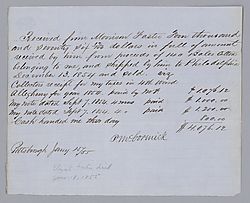 Received from Morrison Foster Four thousand
and seventy six 12/100 dollars in full of amount
received by him from proceeds of 140 Bales Cotton
belonging to me and shipped by him to Philadelphia
December 13. 1854 and sold. viz
Collectors receipt for my taxes in 4th Ward
Allegheny for year 1854. paid by M.F. $1,076.12
My note dated Sept 7, 1854, 4 mos paid $1.000.00
My note dated Sept 1854. paid $1.200.00
Cash handed me this day 800.00
$4,076.12
P McCormick
Pittsburgh Jany 15/55